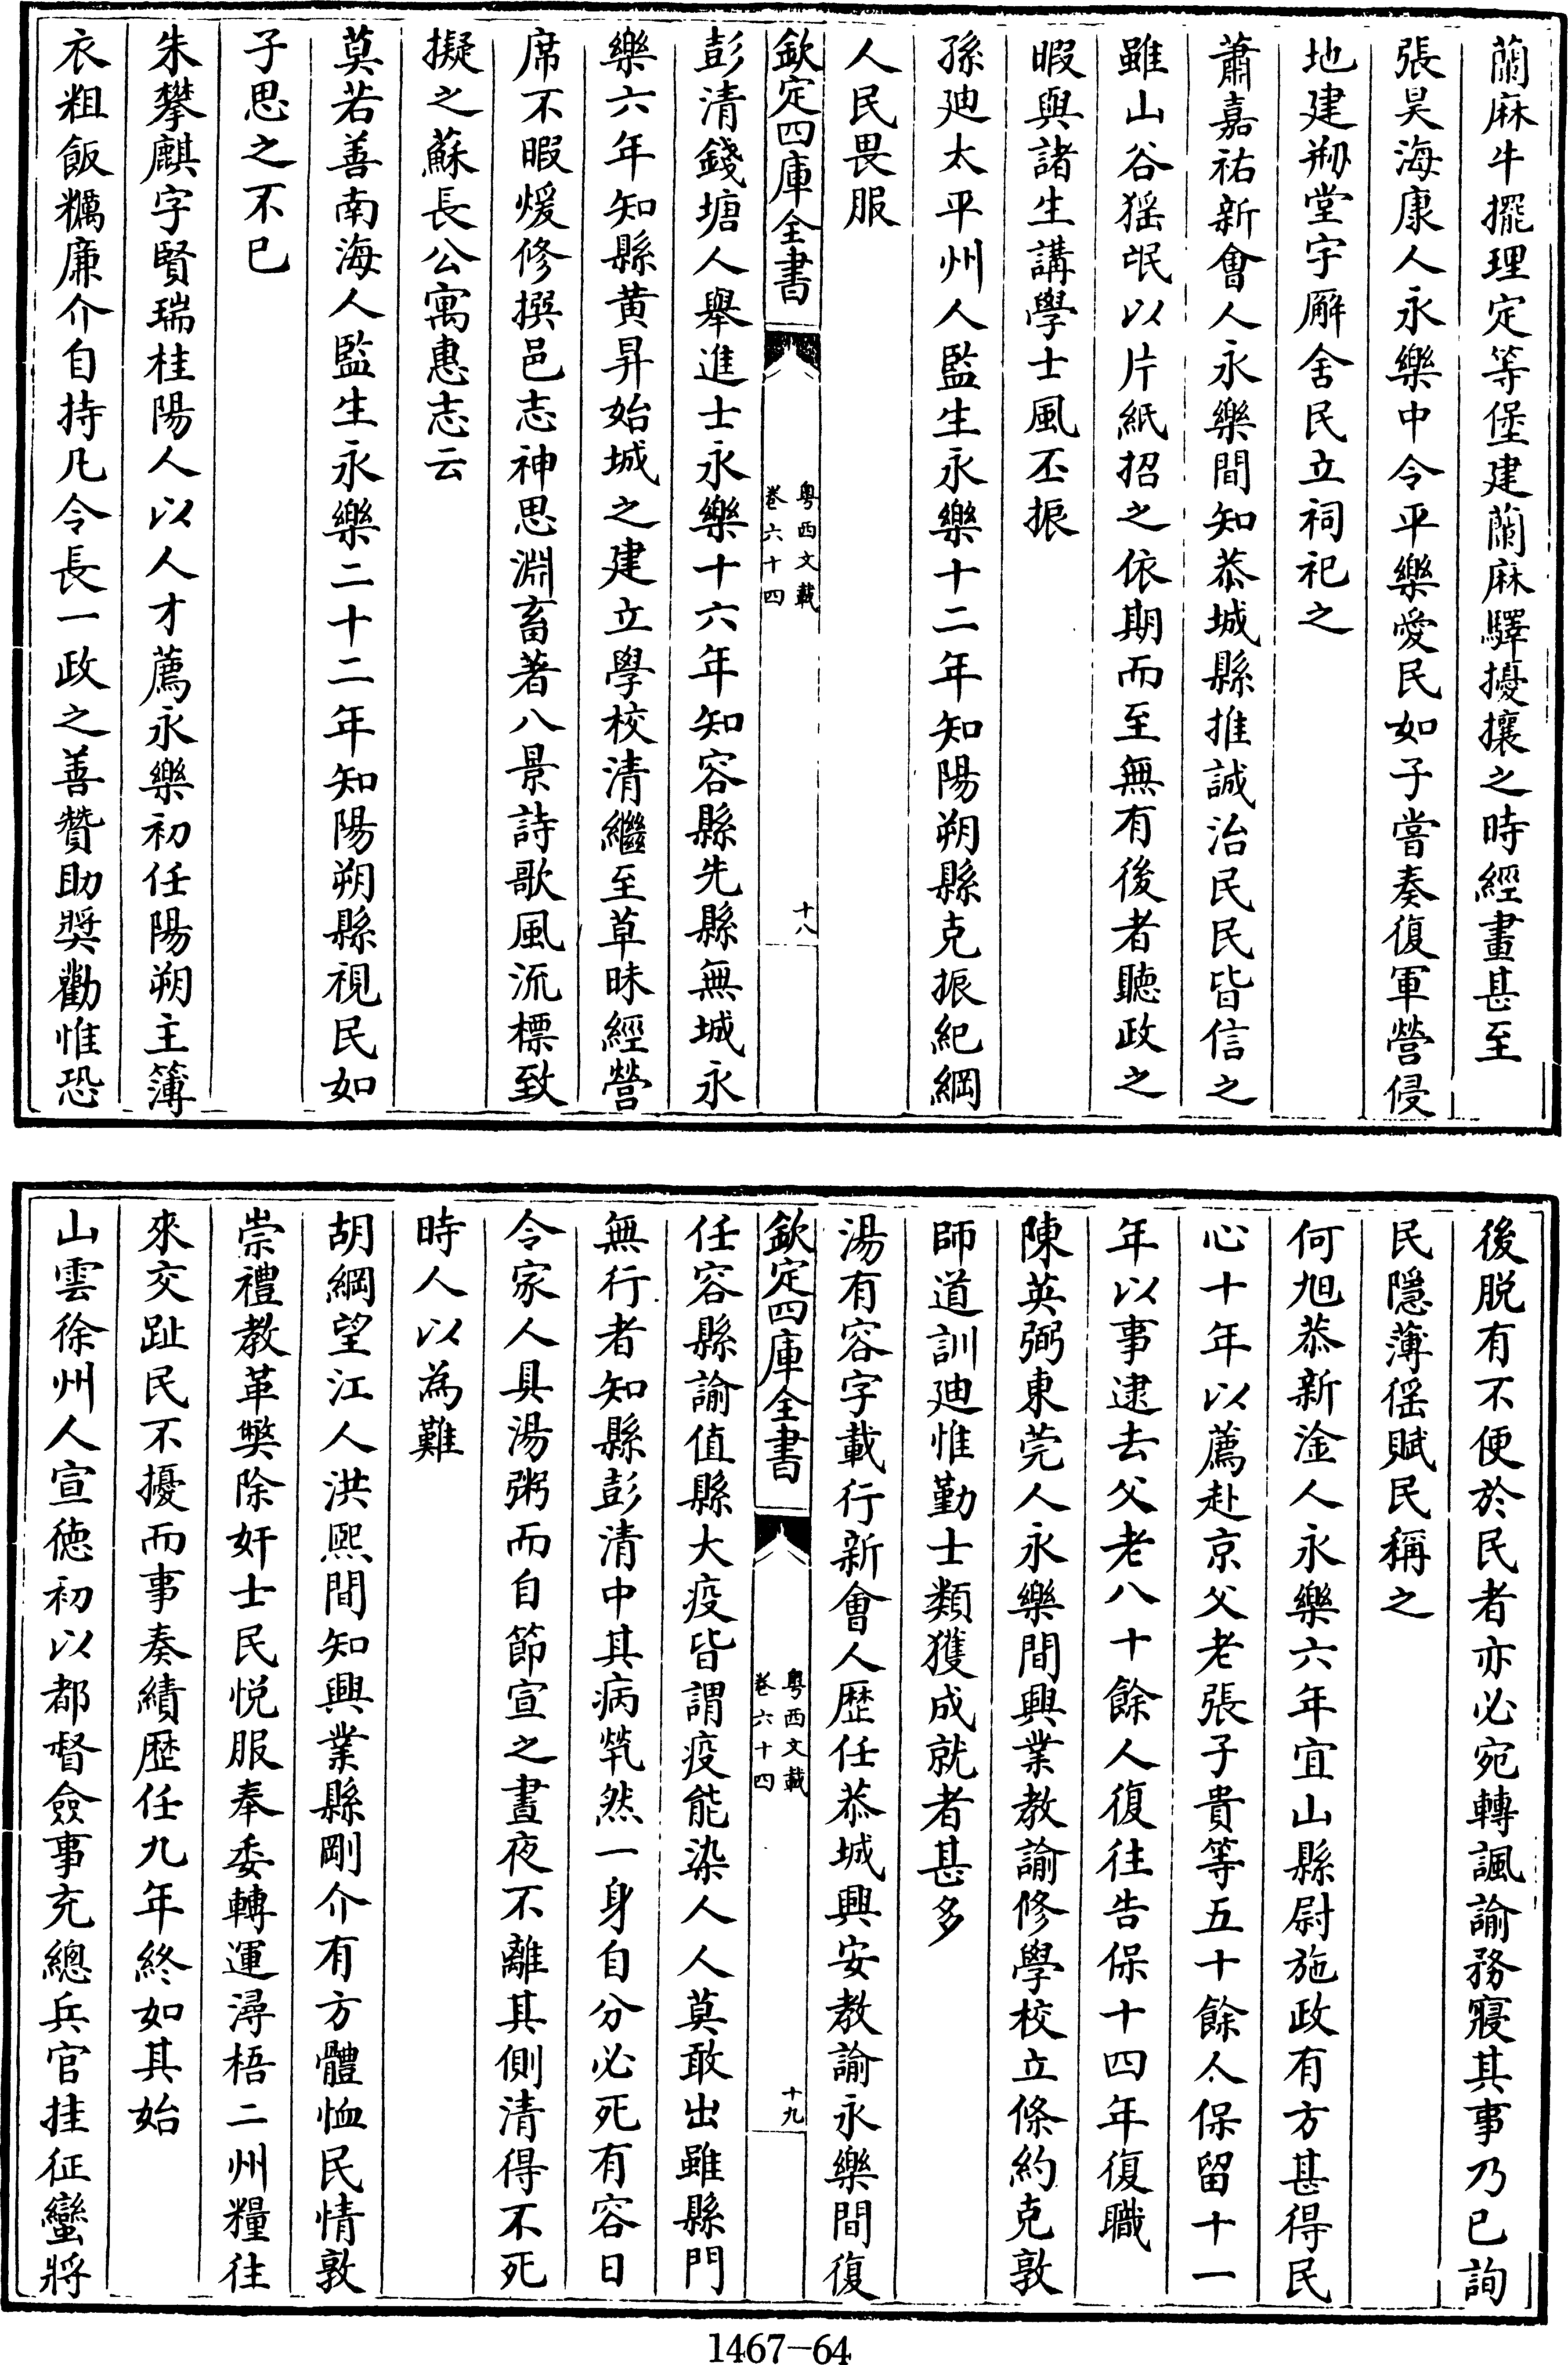 蘭麻牛擺理定等堡建蘭麻驛擾攘之時經畫甚至
張昊海康人永樂中令平樂愛民如子嘗奏復軍營侵
地建剏堂宇廨舍民立祠祀之
蕭嘉祐新會人永樂間知恭城縣推誠治民民皆信之
雖山谷猺氓以片紙招之依期而至無有後者聽政之
暇與諸生講學士風丕振
孫廸太平州人監生永樂十二年知陽朔縣克振紀綱
人民畏服
欽定四庫全書
粤西文載
卷六十四
十八
彭清錢塘人舉進士永樂十六年知容縣先縣無城永
樂六年知縣黄昇始城之建立學校清繼至草昧經營
席不暇煖修撰邑志神思淵畜著八景詩歌風流標致
擬之蘇長公寓惠志云
莫若善南海人監生永樂二十二年知陽朔縣視民如
子思之不已
朱攀麒字賢瑞桂陽人以人才薦永樂初任陽朔主簿
衣粗飯糲廉介自持凡令長一政之善贊助奬勸惟恐
後脱有不便於民者亦必宛轉諷諭務寢其事乃已詢
民隱薄徭賦民稱之
何旭恭新淦人永樂六年宜山縣尉施政有方甚得民
心十年以薦赴京父老張子貴等五十餘人保留十一
年以事逮去父老八十餘人復往告保十四年復職
陳英弼東莞人永樂間興業教諭修學校立條約克敦
師道訓廸惟勤士類獲成就者甚多
湯有容字載行新會人歴任恭城興安教諭永樂間復
欽定四庫全書
粤西文載
卷六十四
十九
任容縣諭值縣大疫皆謂疫能染人人莫敢出雖縣門
無行者知縣彭清中其病煢然一身自分必死有容日
令家人具湯粥而自節宣之晝夜不離其側清得不死
時人以為難
胡綱望江人洪熙間知興業縣剛介有方體恤民情敦
崇禮教革弊除奸士民悦服奉委轉運潯梧二州糧往
來交趾民不擾而事奏績歴任九年終如其始
山雲徐州人宣徳初以都督僉事充總兵官挂征蠻將
1467-64